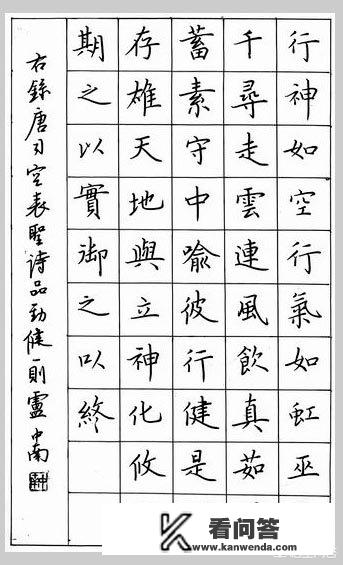 行神如空行氣如虹巫
千尋走雲連風飲真茹
蓄素守中喻彼行健是
存雄天地與立神化攸
期之以實御之以終
右錄唐司空表聖詩品勁健一則盧中南
看问答
www.kanwenda.com